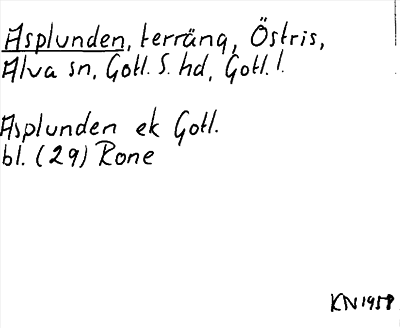 Asplunden, terräng, Östris,
Alva sn, Gotl. S. hd, Gotl. l.
Asplunden ek Gotl.
bl. (29) Rone
KN 1958